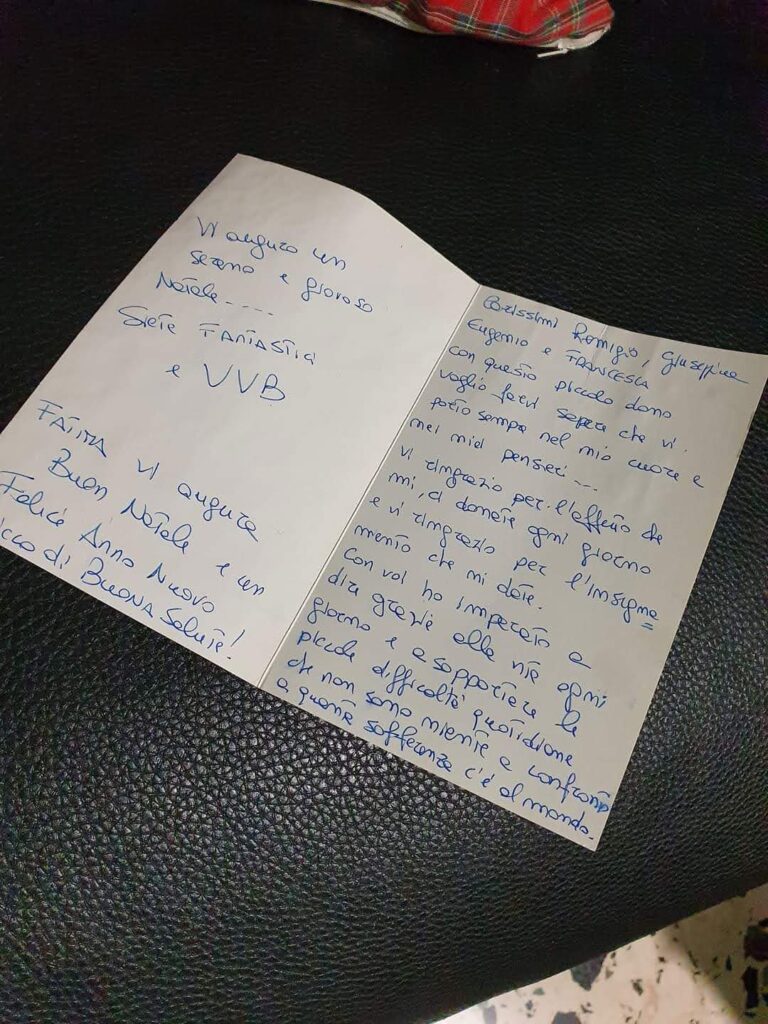 Vi auguro un
sereno e gioroso
Natale....
Siete FANTASTICI
e VVB
FATIMA vi augura
Buon Natale e un
Felice Anno Nuovo
ricco di BUONA Salute!
Carissimi Remigio, Giuseppina
Eugenio e FRANCESCA
con questo piccolo dono
voglio farvi sapere che vi
porto sempre nel mio cuore e
nei miei pensieri...
Vi ringrazio per l'affetto che
mi, ci donate ogni giorno
e vi ringrazio per l'insegna=
mento che mi date.
Con voi ho imparato a
dire grazie alla vita ogni
giorno e a sopportare le
piccole difficoltà quotidiane
che non sono niente a confronto
a quanta sofferenza c'è al mondo.